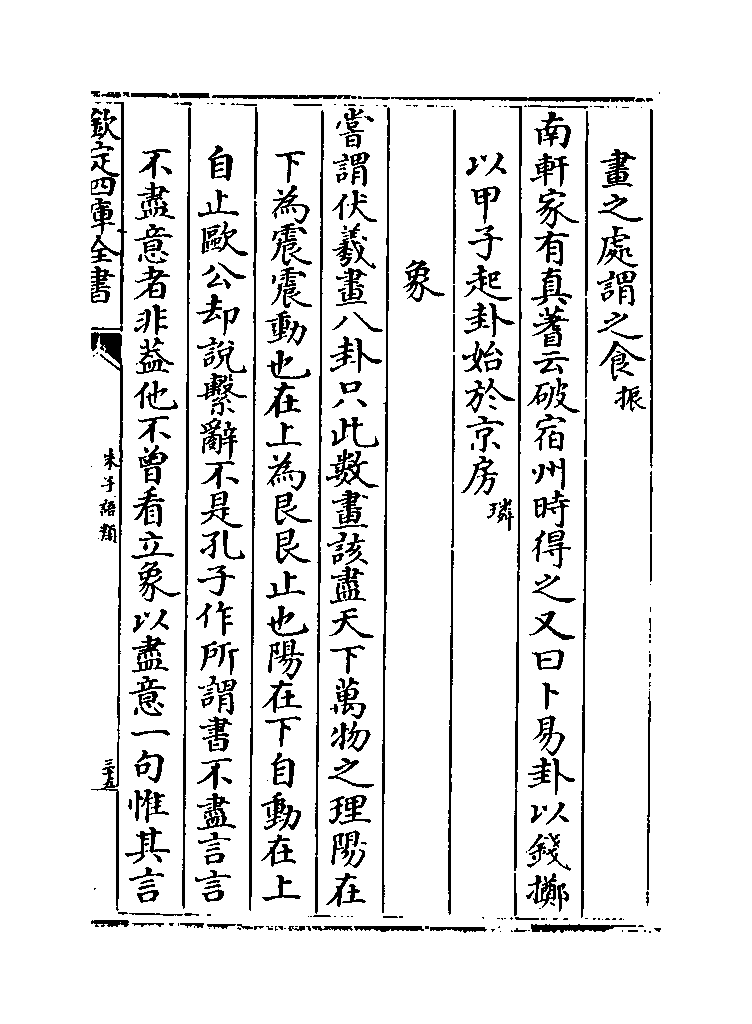 畫之處謂之食振
南軒家有真蓍云破宿州時得之又曰卜易卦以錢擲
以甲子起卦始於京房璘
象
嘗謂伏羲畫八卦只此數畫該盡天下萬物之理陽在
下為震震動也在上為艮艮止也陽在下自動在上
自止歐公却說繫辭不是孔子作所謂書不盡言言
不盡意者非葢他不曾看立象以盡意一句惟其言
欽定四庫全書
朱子語類
三十五